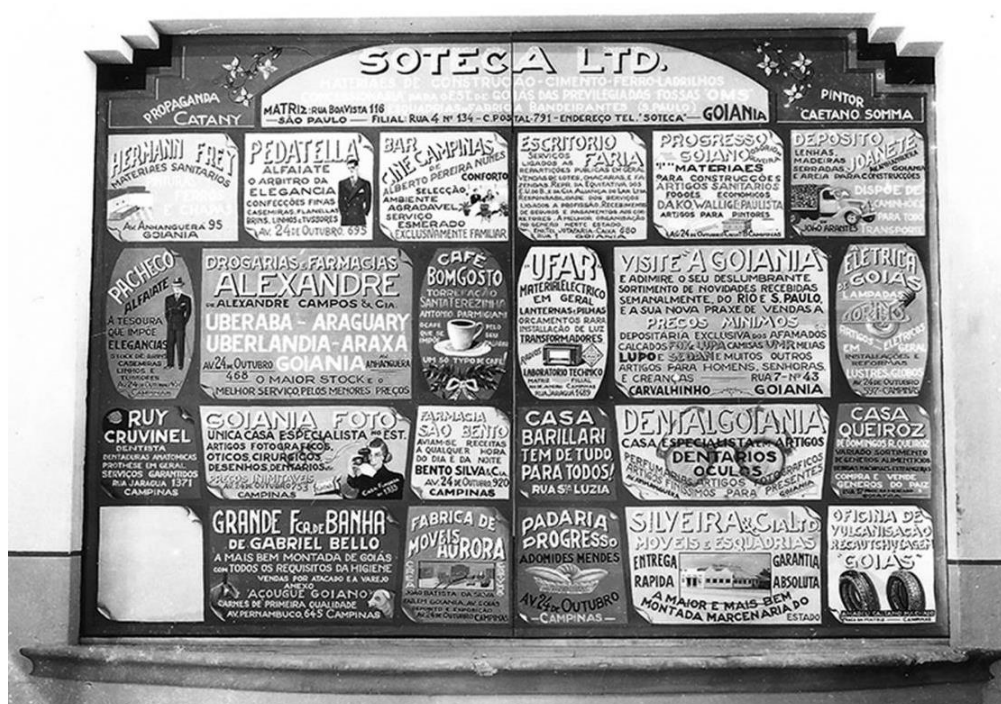 SOTECA LTD.
MATERIAES DE CONSTRUÇÃO-CIMENTO-FERRO-LADRILHOS
CONCESSIONARIA PARA O EST. DE GOIÁS DAS PREVILEGIADAS FOSSAS "OMS"
FABRICA BANDEIRANTES (S.PAULO)
MATRIZ: RUA BOA VISTA 116
—SÃO PAULO— FILIAL: RUA 4 Nº 134-C.POSTAL-791-ENDEREÇO TEL. "SOTECA" — GOIANIA
PROPAGANDA
CATANY
PINTOR
CAETANO SOMMA
HERMANN FREY
MATERIAES SANITARIOS
AV. ANHANGUERA 95
GOIANIA
PEDATELLA
ALFAIATE
O ARBITRO DA
ELEGANCIA
CONFECÇÕES FINAS
CASEMIRAS, FLANELLAS
BRINS, LINHOS, TUSSORES
AV. 24 DE OUTUBRO. 695
BAR
CINE CAMPINAS
DE
ALBERTO PEREIRA NUNES
CONFORTO
SELECÇÃO
AMBIENTE
AGRADAVEL
SERVIÇO
ESMERADO
EXCLUSIVAMENTE FAMILIAR
ESCRITORIO
FARIA
SERVIÇOS
LIGADOS AS
REPARTIÇÕES PUBLICAS EM GERAL
VENDAS DE LOTES, CHACARAS E FA-
ZENDAS. REPR. DA EQUITATIVA DOS
RESPONSABILIDADE DOS SERVIÇOS
LIGADOS A PROFISSÃO. RECEBIMENTO
DE SEGUROS E PAGAMENTOS AOS COR-
RETORES. A MELHOR ORGANISAÇÃO
NO GENERO NESTE ESTADO
CAIXA 680
RUA 1 GOIANIA
PROGRESSO
GOIANO
MATERIAES
PARA CONSTRUCÇÕES
ARTIGOS SANITARIOS
FOGÕES ECONOMICOS
DAKO, WALLIG E PAULISTA
ARTIGOS PARA PINTORES
CAMPINAS
DEPOSITO
JOANETE
LENHAS
MADEIRAS
SERRADAS
E AREIA PARA CONSTRUCÇÕES
AV. ANHANGUERA
GOIANIA
DISPÕE DE
CAMINHÕES
PARA TODO
TRANSPORTE
JOÃO ARANTES
PACHECO
ALFAIATE
A TESOURA
QUE IMPÕE
ELEGANCIAS
STOCK DE BRINS
CASEMIRAS
LINHOS E
TUSSORES
AV. 24 DE OUTUBRO
CAMPINAS
DROGARIAS E FARMACIAS
ALEXANDRE
DE ALEXANDRE CAMPOS & CIA.
UBERABA - ARAGUARY
UBERLANDIA - ARAXA
AV. 24 DE OUTUBRO GOIANIA AV. ANHANGUERA
468 O MAIOR STOCK E O
MELHOR SERVIÇO PELOS MENORES PREÇOS
CAFÉ
BOMGOSTO
TORREFAÇÃO
SANTA TEREZINHA
ANTONIO PARMIGIANI
O CAFÉ
QUE SE
IMPÕE
PELO
SEU
UM SÓ TYPO DE CAFÉ
"UFAR"
MATERIAL ELECTRICO
EM GERAL
LANTERNAS E PILHAS
ORÇAMENTOS PARA
INSTALLAÇÃO DE LUZ
TRANSFORMADORES
RADIOS
LABORATORIO TECHNICO
MATRIZ FILIAL
CAMPINAS
RUA JARAGUA 1689
VISITE "A GOIANIA"
E ADIMIRE O SEU DESLUMBRANTE
SORTIMENTO DE NOVIDADES RECEBIDAS
SEMANALMENTE, DO RIO E S. PAULO,
E A SUA NOVA PRAXE DE VENDAS A
PREÇOS MINIMOS
DEPOSITARIA EXCLUSIVA DOS AFAMADOS
CALÇADOS FOX, LUPA, CAMISAS UMR MEIAS
LUPO E SEDAN E MUITOS OUTROS
ARTIGOS PARA HOMENS, SENHORAS,
E CREANÇAS RUA 7-Nº 43
CARVALHINHO GOIANIA
ELÉTRICA
GOIÁS
LAMPADAS
EM GERAL
INSTALAÇÕES E
REFORMAS
LUSTRES, GLOBOS
AV. 24 DE OUTUBRO
CAMPINAS
RUY
CRUVINEL
DENTISTA
DENTADURAS ANATOMICAS
PROTHESE EM GERAL
SERVIÇOS GARANTIDOS
RUA JARAGUA 1371
CAMPINAS
GOIANIA FOTO
UNICA CASA ESPECIALISTA NO EST.
ARTIGOS FOTOGRAFICOS,
OTICOS, CIRURGICOS
DESENHOS, DENTARIOS
PREÇOS INIMITAVEIS
AV. 24 DE OUTUBRO 753
CAMPINAS
FARMACIA
SÃO BENTO
AVIAM-SE RECEITAS
A QUALQUER HORA
DO DIA E DA NOITE
BENTO SILVA & CIA.
AV. 24 DE OUTUBRO, 920
CAMPINAS
CASA
BARILLARI
TEM DE TUDO,
PARA TODOS!
RUA STA LUZIA
DENTALGOIANIA
CASA ESPECIALISTA EM ARTIGOS
DENTÁRIOS
OCULOS
FINISSIMOS PARA PRESENTES
GOIANIA
CASA
QUEIROZ
DE DOMINGOS R. QUEIROZ
VARIADO SORTIMENTO
DE GENEROS ALIMENTICIOS
BEBIDAS NACIONAIS, ESTRANGEIRAS
COMPRA E VENDE
GENEROS DO PAIZ
GRANDE FCA. DE BANHA
DE GABRIEL BELLO
A MAIS BEM MONTADA DE GOIÁS
COM TODOS OS REQUISITOS DA HIGIENE
VENDAS POR ATACADO E A VAREJO
ANEXO
"AÇOUGUE GOIANO"
CARNES DE PRIMEIRA QUALIDADE
AV. PERNAMBUCO, 645 CAMPINAS
FABRICA DE
MOVEIS AURORA
JOÃO BATISTA DA SILVA
FAB. EM GOIANIA, AV. GOIÁS
DEPOSITO E EXPOSIÇÃO
AV. 24 DE OUTUBRO CAMPINAS
PADARIA
PROGRESSO
ADOMIDES MENDES
AV. 24 DE OUTUBRO
—CAMPINAS—
SILVEIRA & CIA LTD
MOVEIS E ESQUADRIAS
ENTREGA
RAPIDA
GARANTIA
ABSOLUTA
A MAIOR E MAIS BEM
MONTADA MARCENARIA DO
ESTADO
OFICINA DE
VULCANISAÇÃO
RECAUTCHUTAGEM
"GOIAS"
CAMPINAS